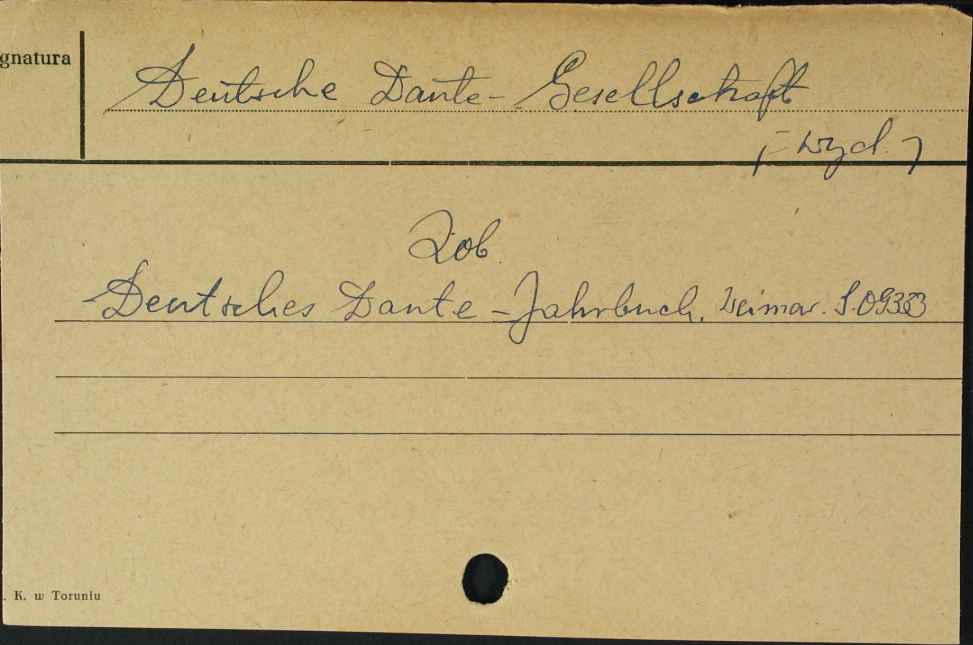 gnatura
Deutsche Dante-Gesellschaft
[-wyd.]
Zob.
Deutsches Dante-Jahrbuch. Weimar. S.09333
. K. w Toruniu